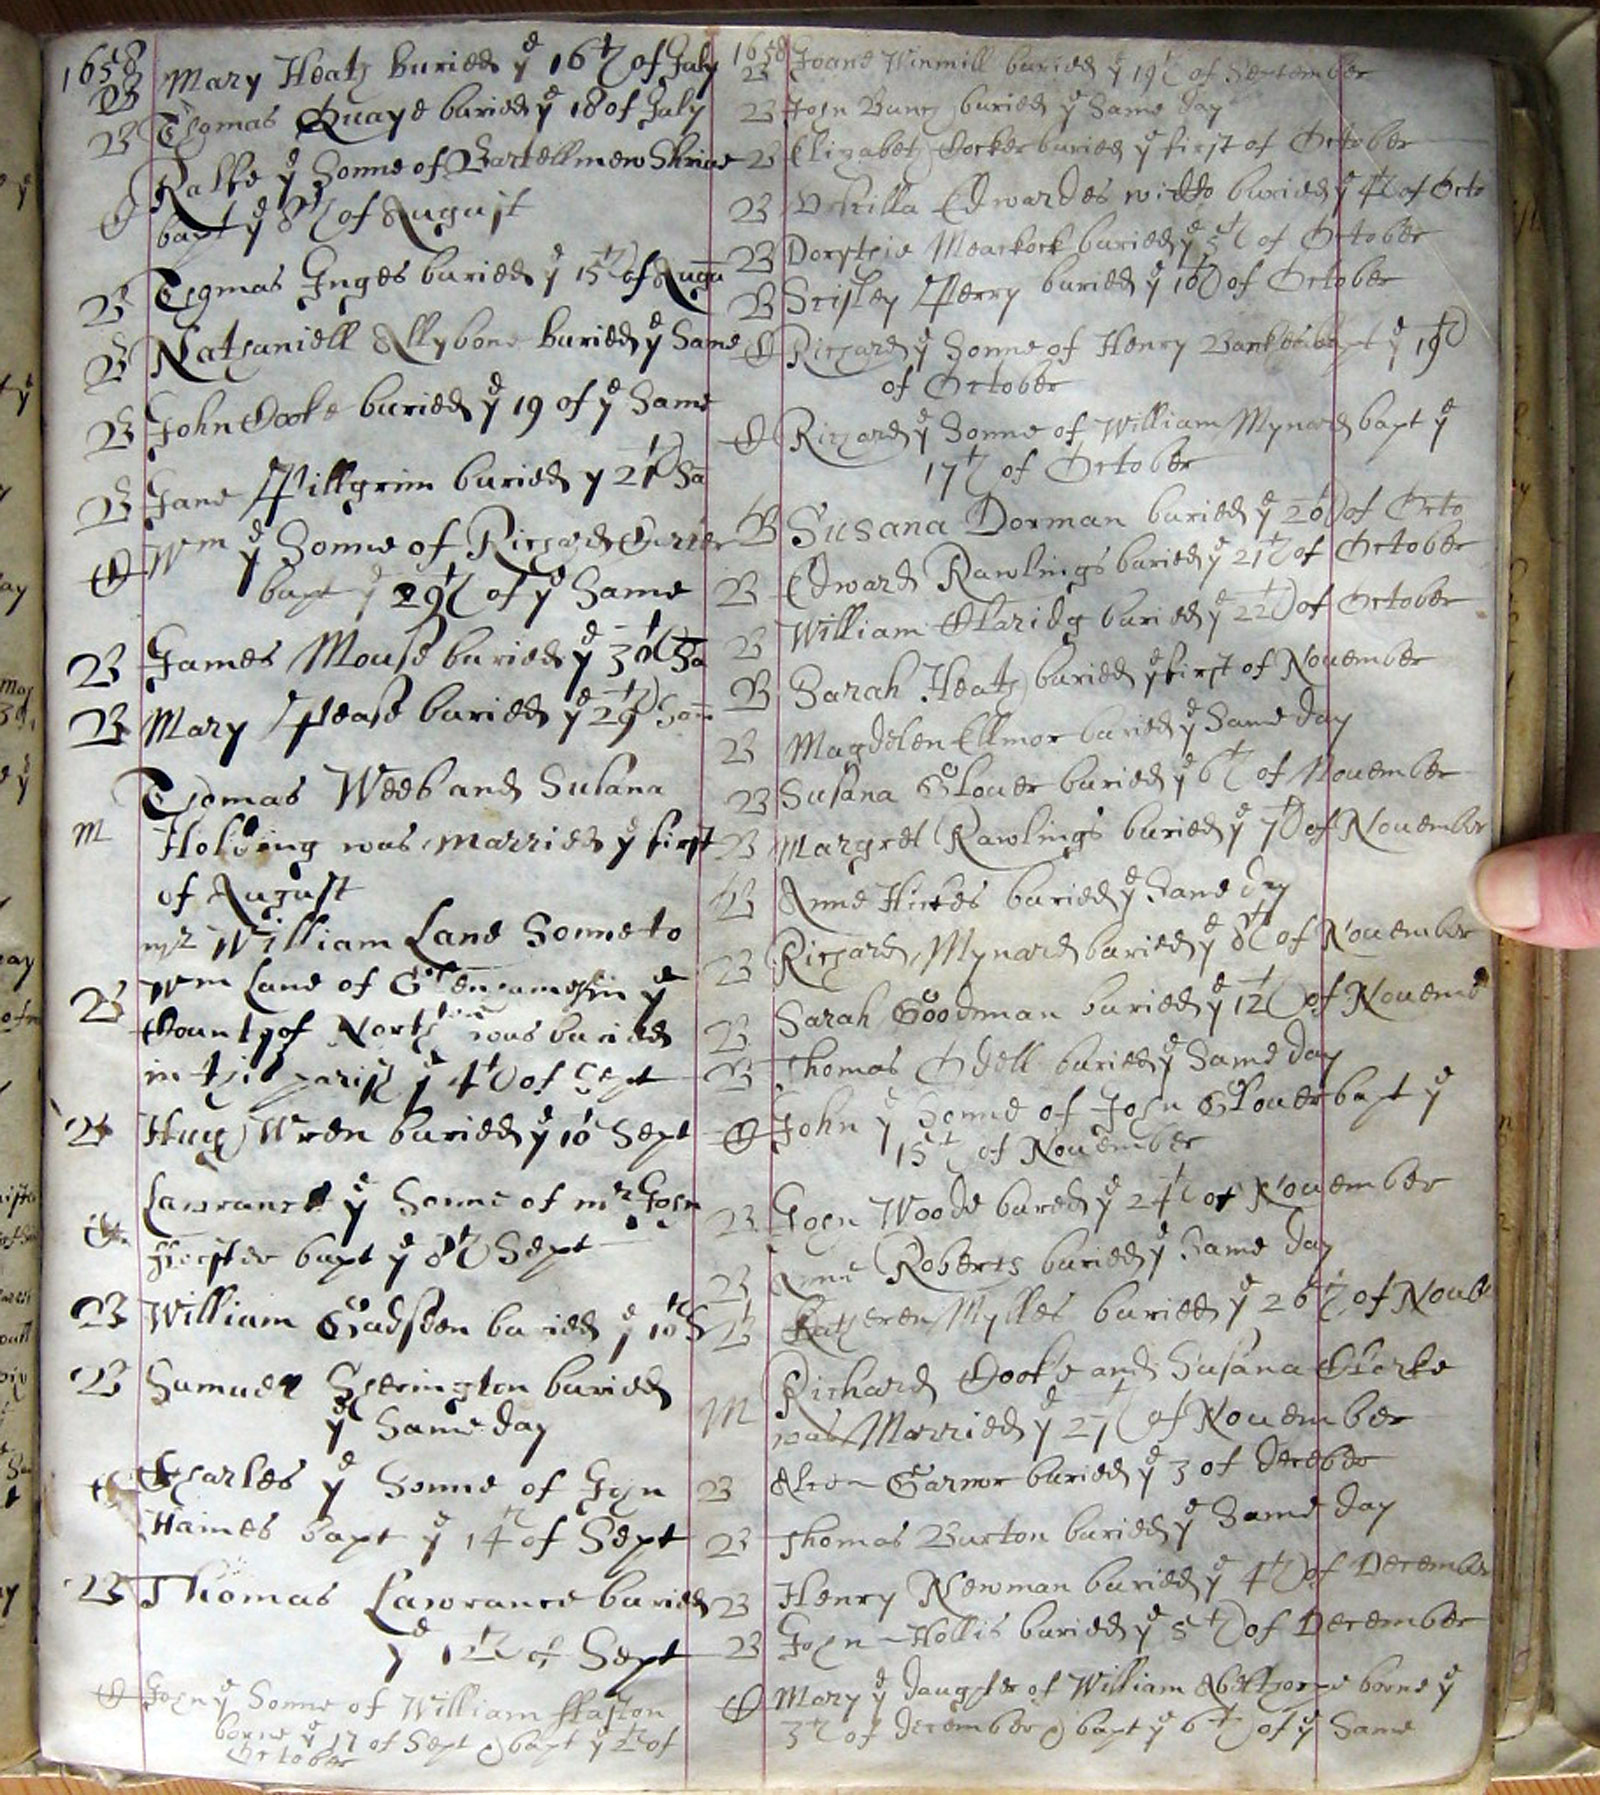 1658
B Mary Heath buried ye 16th of July
B Thomas Quaye buried ye 18 of July
C Ralfe ye Sonne of Bartellmew
bapt ye 8th of August
B Thomas Inges buried ye 15th of Augu
B Nathaniell Allybone buried ye Same
B John Cooke buried ye 19 of ye Same
B Jane Pillgrim buried y 21th Sa
C Wm ye Sonne of Richard
bapt ye 29th of ye Same
B James Mouse buried ye 30th Sa
B Mary Pease buried ye 29th Sam
Thomas Weeb and Susana
M Holding was Married y first
of August
mr William Lane Sonne to
B Wm Lane of in ye
County of North was buried
in this parish ye 4th of Sept
B Hugh Wren buried ye 10 Sept
Lawrance ye Sonne of mr John
C bapt ye 8th Sept
B William Gadsden buried ye 10th S
B Samuel Sherington buried
ye Same day
C Charles ye Sonne of John
Haines bapt ye 14th of Sept
B Thomas Lawrance buried
ye 12th of Sept
C John ye Sonne of William
borne ye 17 of Sept & bapt ye of
October
1658
B Joane Winmill buried ye 19th of September
B John buried ye Same day
B Elizabeth Cocker buried ye first of October
B Vrsilla Edwardes widdo buried ye 4th of Octo
B Meackock buried ye 5th of October
B Sisley Perry buried ye 10th of October
C Richard ye Sonne of Henry bapt ye 19th
of October
C Richard ye Sonne of William Mynard bapt ye
17th of October
B Susana Dorman buried ye 20th of Octo
B Edward Rawlings buried ye 21th of October
B William Claridg buried ye 22th of October
B Sarah Heath buried ye first of November
B Magdelen Ellmor buried ye Same day
B Susana Glouer buried ye 6th of Nouember
B Margret Rawlings buried ye 7th of Nouember
B Anne Hickes buried ye Same day
B Richard Mynard buried ye 8th of Nouember
B Sarah Goodman buried ye 12th of Nouemb
B Thomas Odell buried ye Same day
C John ye Sonne of John Glouer bapt ye
15th of Nouember
B John Woode buried ye 24th of Nouember
B Anne Roberts buried ye Same day
B Katheren Mylles buried ye 26th of Noueb
Richard Cooke and Susana Clarke
M was Married ye 27th of Nouember
B Garnor buried ye 3 of december
B Thomas Burton buried ye Same day
B Henry Newman buried ye 4th of December
B John Hollis buried ye 5th of December
C Mary ye daughter of William borne ye
3th of december & bapt ye 6th of ye Same